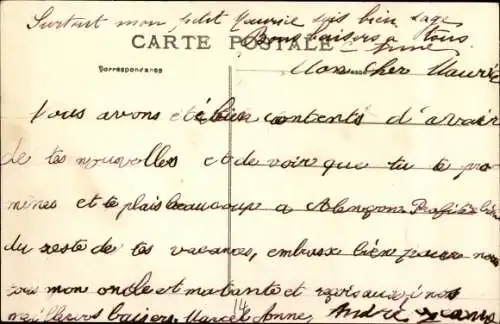 Surtout mon petit Maurice sois bien sage
Bons baisers a tous
CARTE POSTALE
Correspondance
Mon cher Maurice
Nous avons été bien contents d'avoir
de tes nouvelles et de voir que tu te pro
mènes et te plais beaucoup a Alençon Profite bien
du reste de tes vacances, embrasse bien pour nous
tous mon oncle et ma tante et reçois aussi nos
meilleurs baisers. Marcel Anne André
14